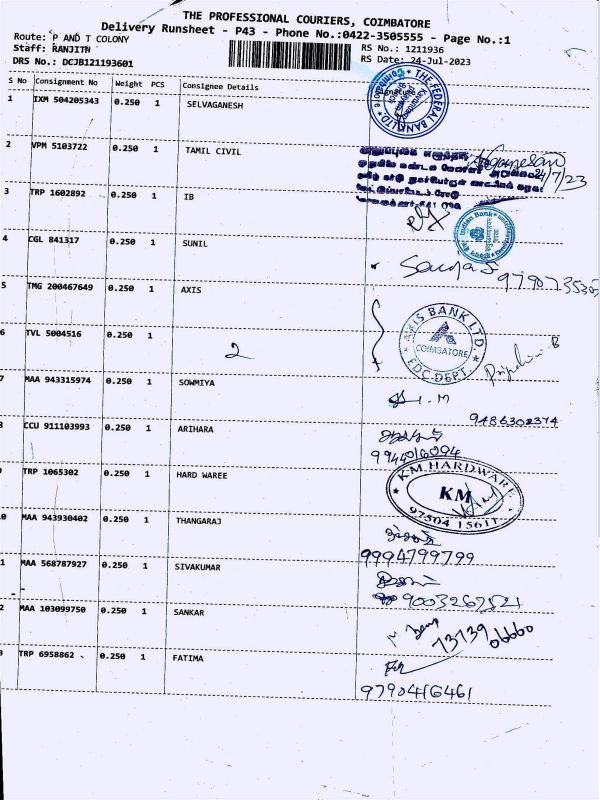 THE PROFESSIONAL COURIERS, COIMBATORE
Delivery Runsheet - P43 - Phone No.:0422-3505555 - Page No.:1
Route: P AND T COLONY
RS No.: 1211936
Staff: RANJITH
RS Date: 24-Jul-2023
DRS No.: DCJB121193601
S No Consignment No Weight PCS Consignee Details Signature
1 IXM 504205343 0.250 1 SELVAGANESH
THE FEDERAL BANK LTD.
2 VPM 5103722 0.250 1 TAMIL CIVIL
24/7/23
3 TRP 1602892 0.250 1 IB
Indian Bank
4 CGL 841317 0.250 1 SUNIL
5 TMG 200467649 0.250 1 AXIS
AXIS BANK LTD.
COIMBATORE
6 TVL 5004516 0.250 1 2
7 MAA 943315974 0.250 1 SOWMIYA
9486302374
8 CCU 911103993 0.250 1 ARIHARA
9944016094
KM HARDWARE
9 TRP 1065302 0.250 1 HARD WAREE
KM
97504 15611
0 MAA 943930402 0.250 1 THANGARAJ
9994799799
1 MAA 568787927 0.250 1 SIVAKUMAR
9003267521
2 MAA 103099750 0.250 1 SANKAR
73739 06660
3 TRP 6958862 0.250 1 FATIMA
9790416461